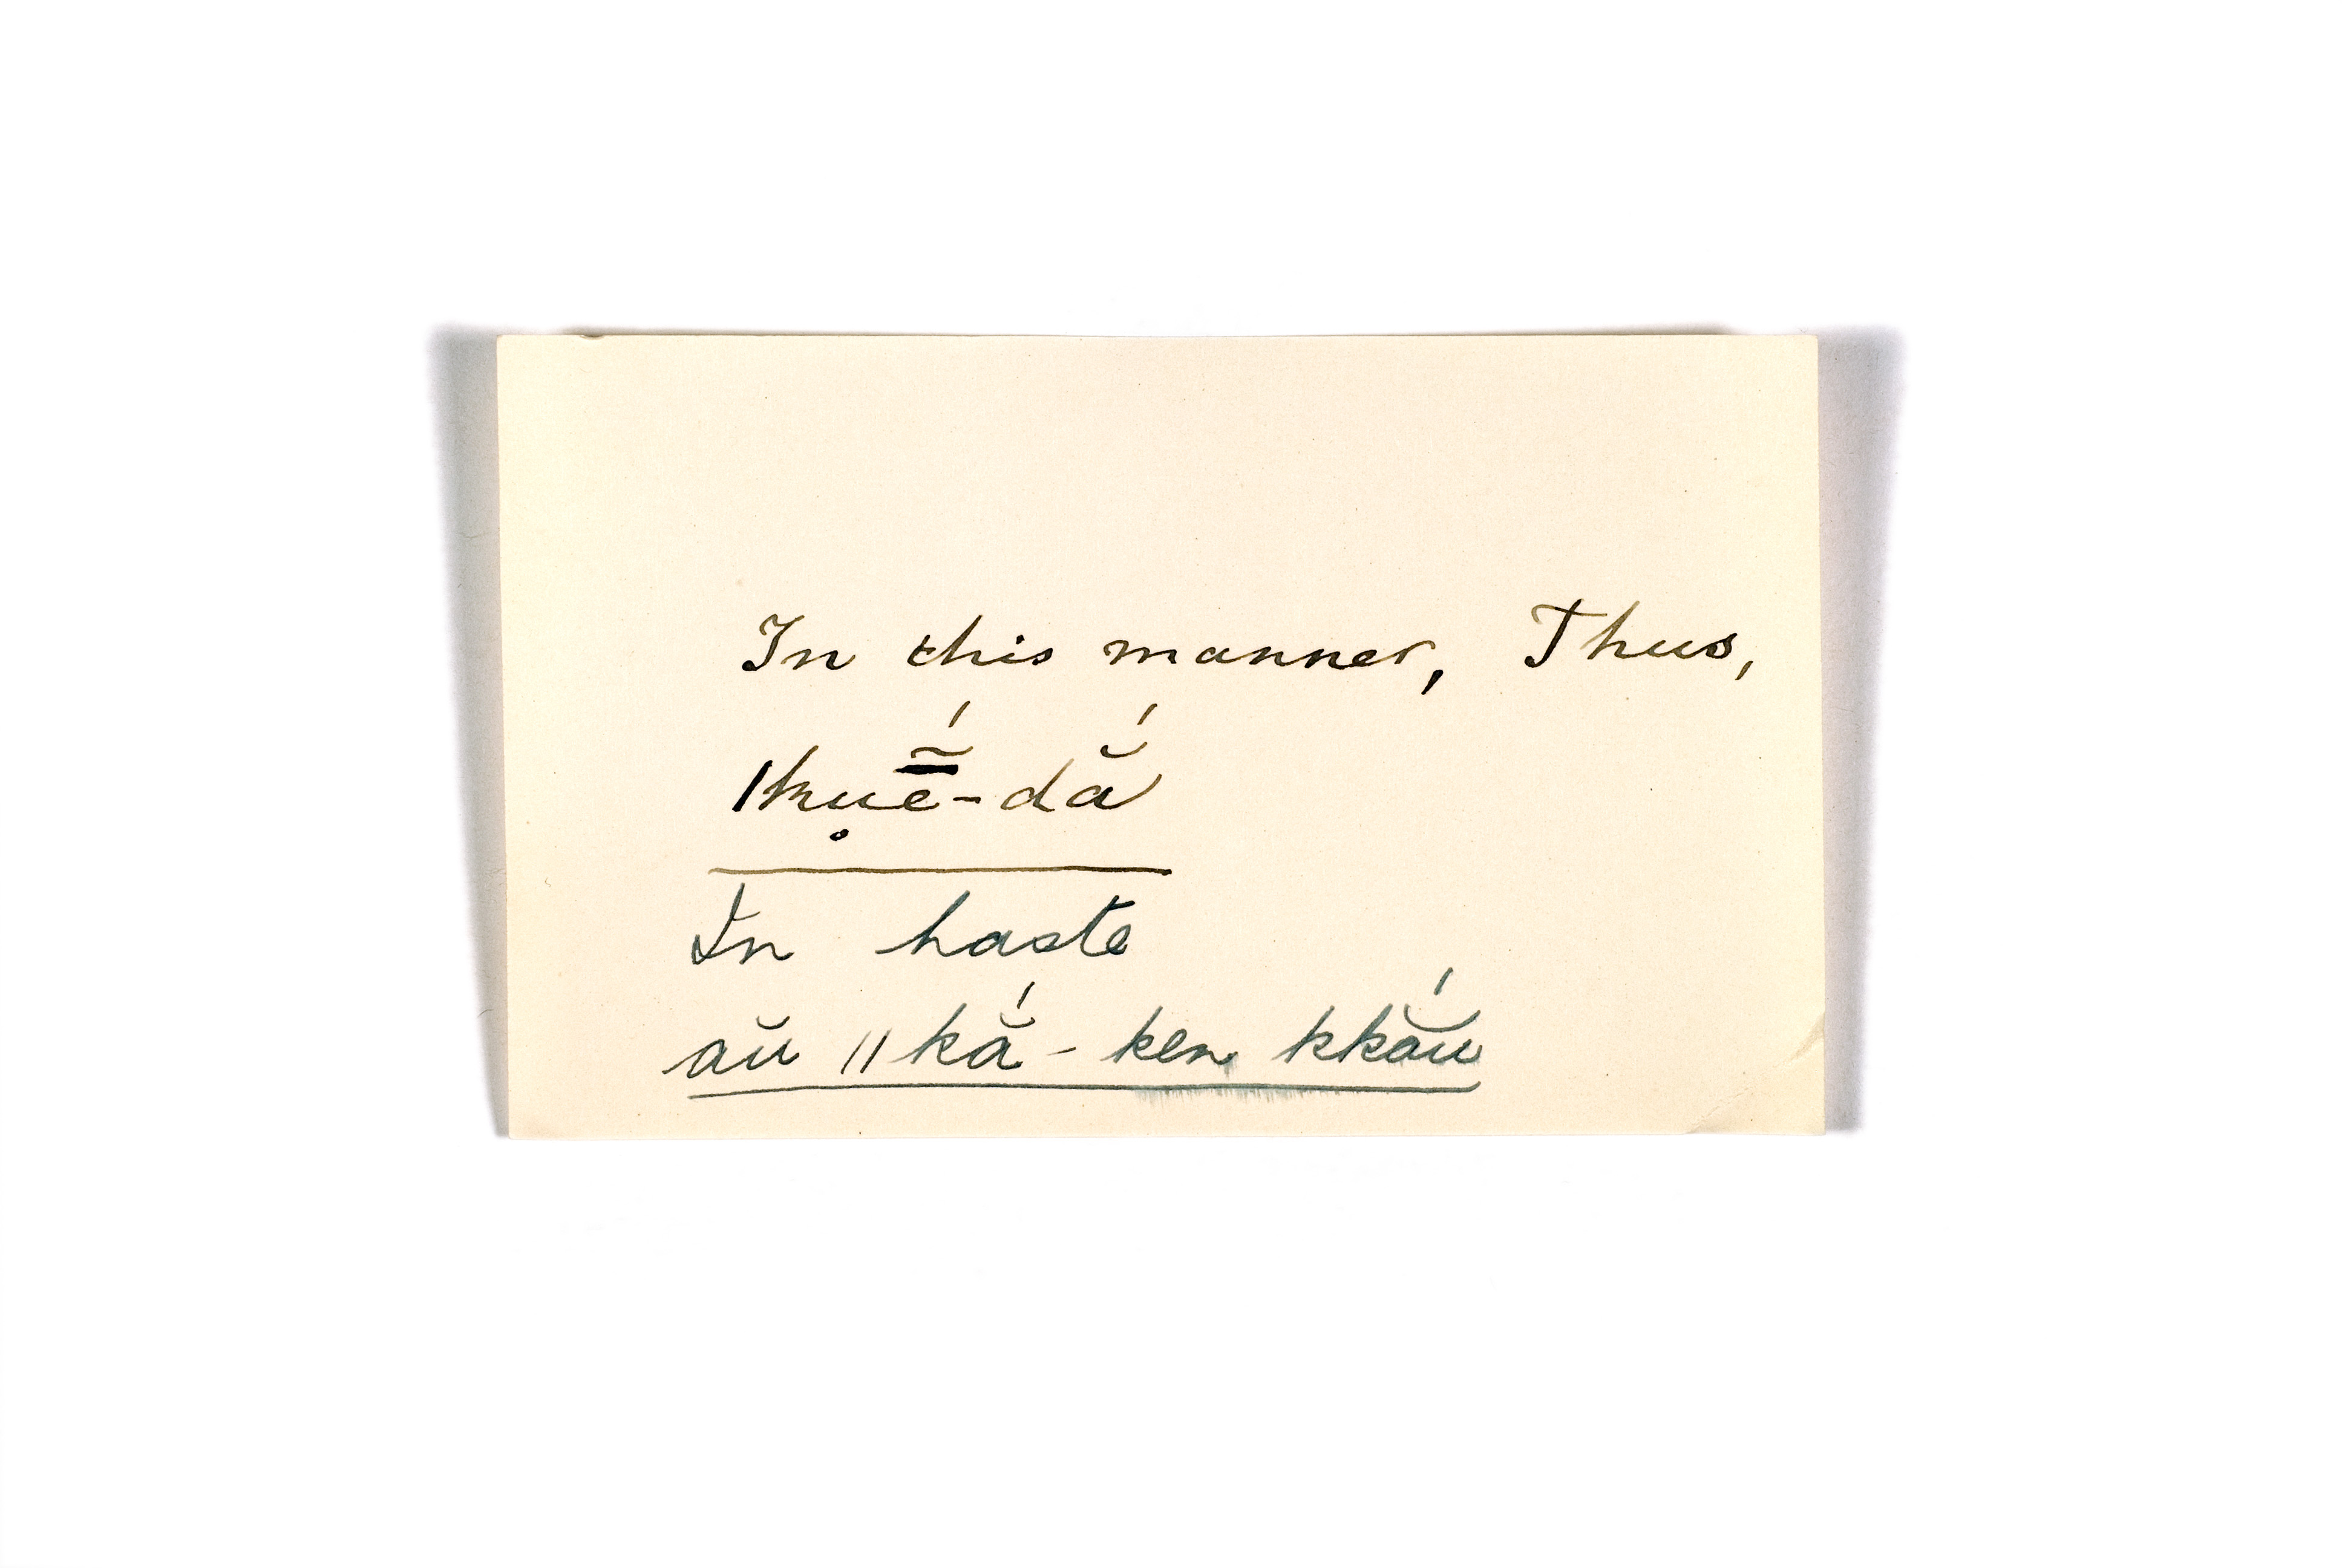 In this manner, Thus,
|kụē̃́-dắ
In haste
aŭ ||kắ-ken kkắu